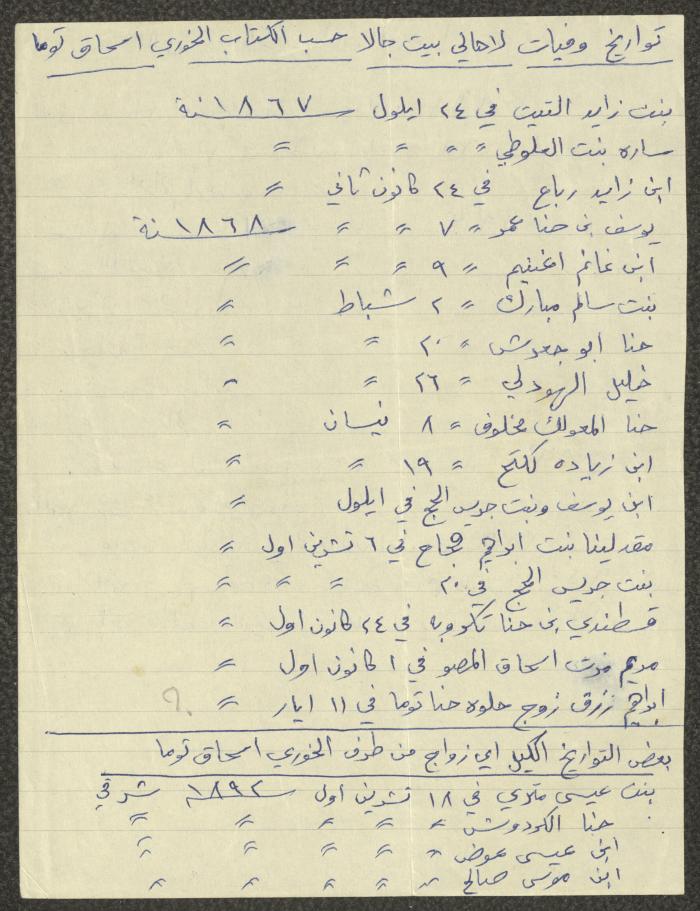 تواريخ وفيات لاهالي بيت جالا حسب الكتاب الخوري اسحاق توما
بنت زايد التيت في ٢٤ ايلول سنة ١٨٦٧
ساره بنت العلوطي " " " "
ابن زايد رباع في ٢٤ كانون ثاني "
يوسف بن حنا عمر " ٧ " " سنة ١٨٦٨
ابن غانم اغنيم " ٩ " " "
بنت سالم مبارك " ٢ شباط "
حنا ابو جعدوش " ٢٠ " "
خليل الهودلي " ٢٦ " "
حنا المعولك مخلوف " ٨ نيسان "
ابن زياده " ١٩ " "
ابن يوسف وبنت جريس الحج في ايلول "
مقدلينا بنت ابراهيم حجاج في ٦ تشرين اول "
بنت جريس الحج في ٢٠ " " "
قسطندي بن حنا تكروبه في ٢٤ كانون اول "
مريم بنت اسحاق المصو في ١ كانون اول "
ابراهيم رزق زوج حلوه حنا توما في ١١ ايار " ؟
بعض التواريخ اكليل اي زواج من طرف الخوري اسحاق توما
بنت عيسى متري في ١٨ تشرين اول سنة ١٨٩٢ شرقي
حنا الكردوش " " " " "
ابن عيسى عوض " " " " "
ابن موسى صالح " " " " "